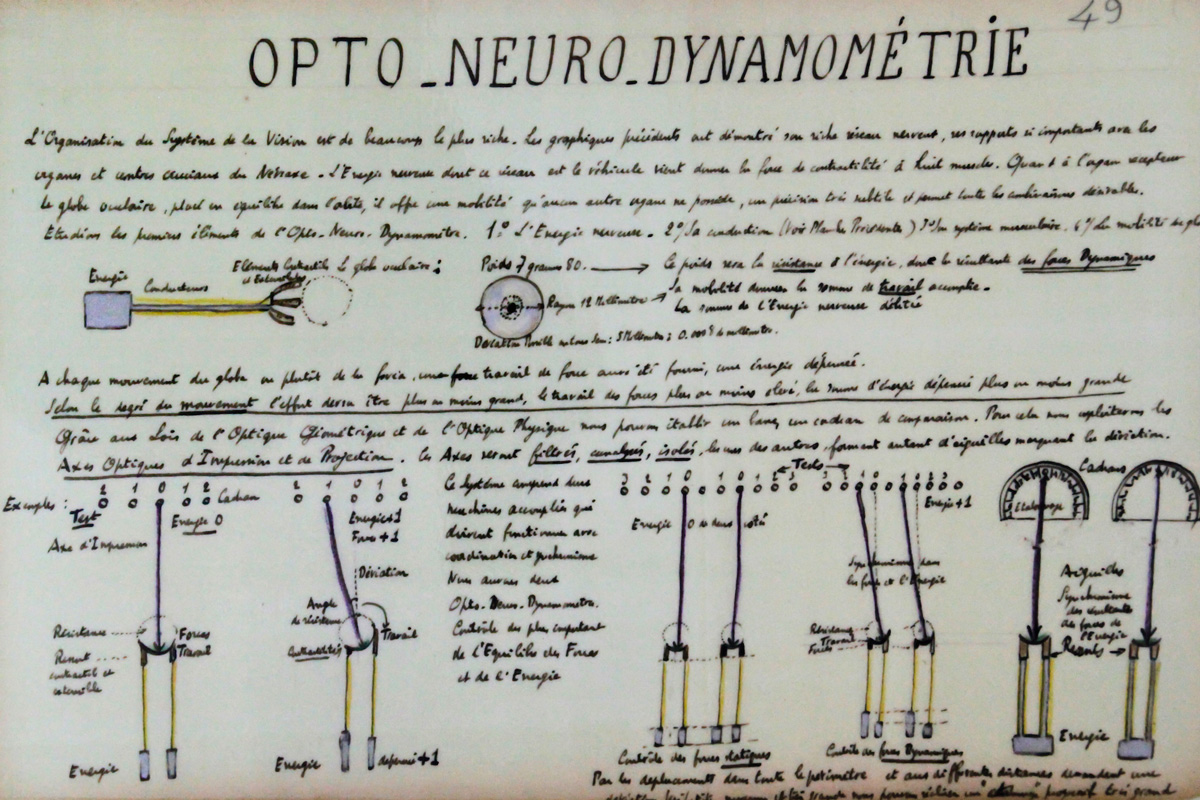 49
OPTO_NEURO_DYNAMOMÉTRIE
L'Organisation du Système de la Vision est de beaucoup le plus riche. Les graphiques précédents ont démontré son riche réseau nerveux, ses rapports si importants avec les
organes et centres du Névraxe. L'Energie nerveuse dont ce réseau est le véhicule vient donner la force de contractilité à huit muscles. Quant à l'organe recepteur
le globe oculaire, placé en equilibre dans l'orbite, il offre une mobilité qu'aucun autre organe ne possède, une précision très subtile et permet toute les combinaisons désirables.
Etudions les premiers éléments de l'Opto-Neuro-Dynamomètre. 1º L'Energie nerveuse - 2º Sa conduction (Voir Planche Précédente) 3º Un système musculaire. 4º La mobilité du glo
Energie
Conducteurs
Eléments Contractils et Extensibles
Le globe oculaire:
Poids 7 grammes 80.
Ce poids sera la résistance à l'énergie, dont la résultante des forces Dynamiques
Rayon 12 Millimètre
Sa mobilité donnera la somme de travail accomplie.
La somme de l'Energie nerveuse débitée
Déviation Possible en tous Sens: 5 Millimètres:
A chaque mouvement du globe ou plutôt de la fovéa, une travail de force aura été fourni, une énergie dépensée.
Selon le degré du mouvement l'effort devra être plus ou moins grand, le travail des forces plus ou moins élevé, la somme d'énergie dépensée plus ou moins grande
Grâce aux Lois de l'Optique Géométrique et de l'Optique Physique nous pouvons établir un banc, un cadran de comparaison. Pour cela nous exploiterons les
Axes Optiques d'Impression et de Projection. Ces Axes seront filtrés, canalysés, isolés, les uns des autres, forment autant d'aiguilles marquant la déviation.
Exemples:
2 1 0 1 2
Cadran
Test
Energie 0
Axe d'Impression
Résistance
Forces
Travail
Ressort contractil et extensible
Energie
2 1 0 1 2
Energie+1
Force +1
Déviation
Angle de résistance
Travail
Contractilités
Energie
dépensée +1
Ce Système comprend deux
machines accouplées qui
doivent fonctionner avec
coordination et synchronisme
Nous aurons deux
Opto-Neuro-Dynamomètre.
Contrôle des plus important
de l'Equilibre des Forces
et de l'Energie
Tests
3 2 1 0 1 0 1 2 3
Energie 0 de deux côté
Contrôle des forces statiques
Energie+1
Synchronisme dans
les forces et l'Energie
Résistance
Travail
Forces
Contrôle des forces Dynamiques
Cadrans
Aiguilles
Synchronisme
des résultantes
des forces de
l'Energie
Ressorts
Energie
Par les déplacements dans toute le périmètre et aux différentes distances demandant une